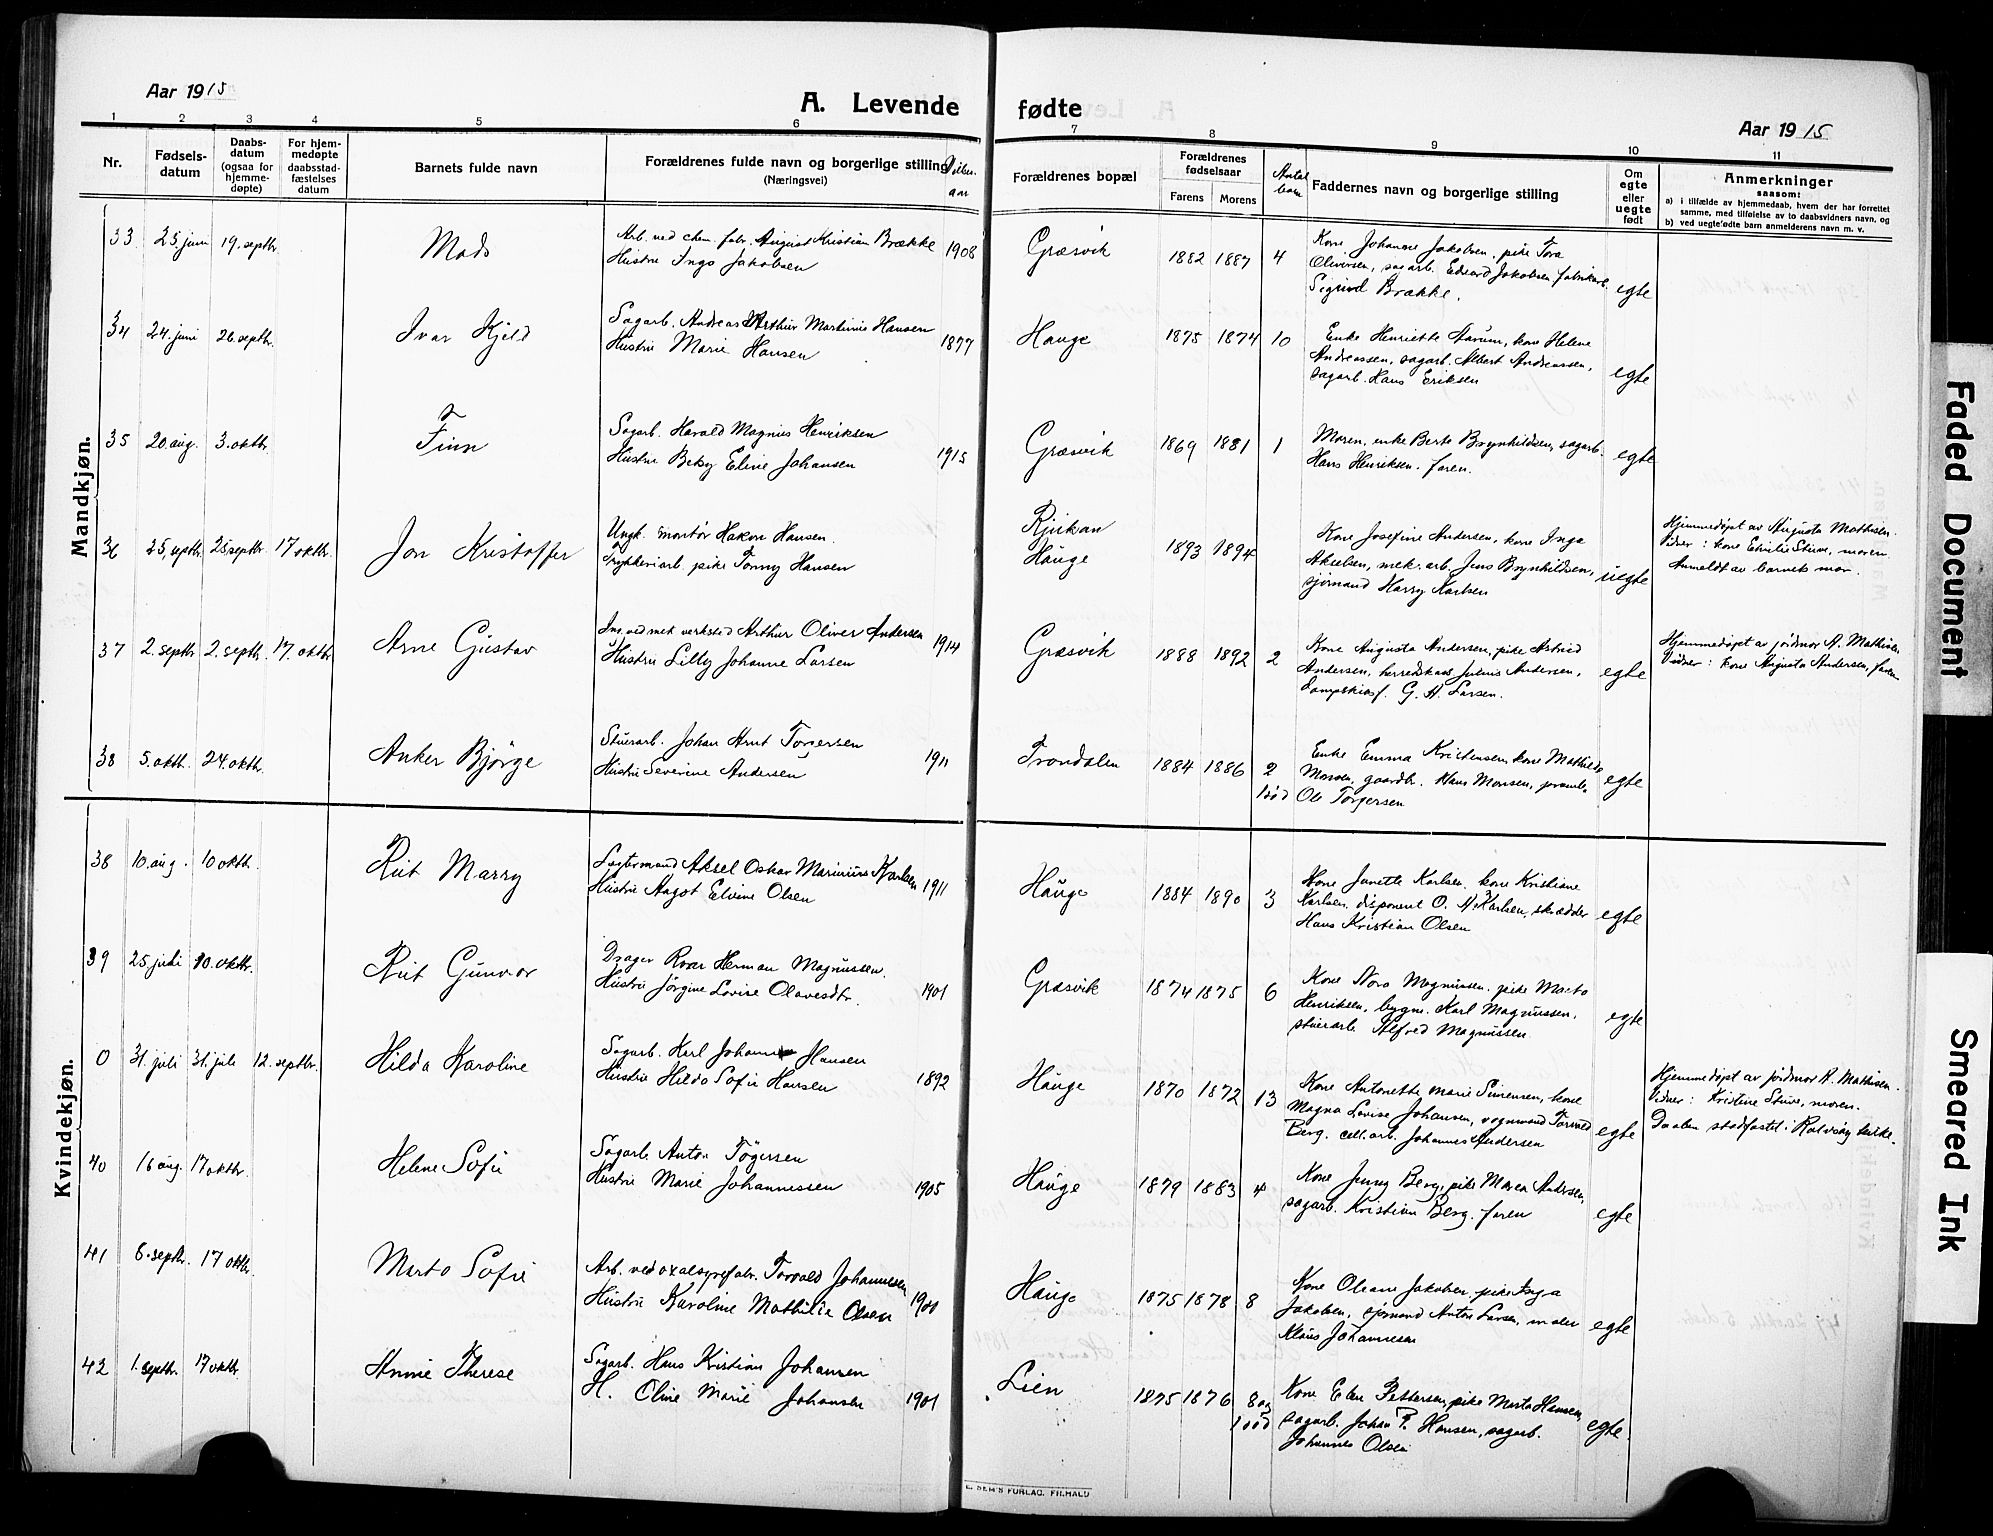 Aar 1915
A. Levende fødte
Aar 1915
1 2 3 4 5 6 7 8 9 10 11
Nr.
Fødsels-
datum
Daabs-
datum
(ogsaa for
hjemme-
døpte)
For hjem-
medøpte
daabsstad-
fæstelses
datum
Barnets fulde navn
Forældrenes fulde navn og borgerlige stilling
(Næringsvei)
aar
Forældrenes bopæl
Forældrenes
fødselsaar
Farens Morens
Antal
barn
Faddernes navn og borgerlige stilling
Om
egte
eller
uegte
født
Anmerkninger
saasom:
a) i tilfælde av hjemmedaab, hvem der har forrettet
samme, med tilføielse av to daabsvidners navn, og
b) ved uegtefødte barn anmelderens navn m. v.
Mandkjøn.
33 25. juni 19. septbr. Mads
Arb. ved chem. fabr. August Kristian Brække
Hustru Inga Jakobsen 1908
Græsvik 1882 1887 4
Kone Johanne Jakobsen, pike Tora
Oliversen, sagarb. Edvard Jakobsen, fabrikarb.
Sigurd Brække. egte
34 24. juni 26. septbr. Ivar Kjeld
Sagarb. Andreas Arthur Martinius Hansen
Hustru Marie Hansen 1877
Hauge 1875 1874 10
Enke Henriette Aarum, kone Helene
Andreassen, sagarb. Albert Andreassen,
sagarb. Hans Eriksen egte
35 20. aug. 3. oktbr. Finn
Sagarb. Harald Magnus Henriksen
Hustru Betsy Eline Johansen 1915
Græsvik 1869 1881 1
Moren, enke Berte Brynhildsen, sagarb.
Hans Henriksen. faren. egte
36 25. septbr. 25 septbr. 17 oktbr. Jon Kristoffer
Ungk. montør Hakon Hansen.
Trykkeriarb. pike Tommy Hansen
Rjukan
Hauge 1893 1894
Kone Josefine Andersen, kone Inga
Akselsen, mek. arb. Jens Brynhildsen,
sjømand Harry Karlsen uegte
Hjemmedøpt av Augusta Mathisen.
Vidner: kone Emilie Stuve, moren.
Anmeldt av barnets mor.
37 2. septbr. 2. septbr. 17. oktbr. Arne Gustav
ved mek verksted Arthur Oliver Andersen
Hustru Lilly Johanne Larsen 1914
Græsvik 1888 1892 2
Kone Augusta Andersen, pike Astrid
Andersen, herredskas Julius Andersen,
G. H. Larsen. egte
Hjemmedøpt av jordmor A. Mathisen
Vidner: kone Augusta Andersen, faren
38 5. oktbr. 24. oktbr. Anker Bjørge
Stuerarb. Johan Arnt Torgersen
Hustru Severine Andersen 1911
Trondalen 1884 1886 2
1 død
Enke Emma Kristensen, kone Mathilde
Monsen, gaardbr. Hans Monsen,
Ole Torgersen egte
Kvindekjøn.
38 10. aug. 10 oktbr. Rut Marry
Sagtermand Aksel Oskar Marinius Karlsen
Hustru Aagot Elvine Olsen 1911
Hauge 1884 1890 3
Kone Janette Karlsen. kone Kristiane
Karlsen. disponent O. N. Karlsen, skrædder
Hans Kristian Olsen egte
39 25 juli 10. oktbr. Rut Gunvor
Drager Roar Herman Magnussen.
Hustru Jørgine Lovise Olavesdtr. 1901
Græsvik 1874 1875 6
Kone Nora Magnussen. pike Marta
Henriksen, bygm. Karl Magnussen,
stuerarb. Alfred Magnussen egte
0 31 juli 31. juli 12. septbr. Hilda Karoline
Sagarb. Karl Johan Hansen
Hustru Hilda Sofie Hansen 1892
Hauge 1870 1872 13
Kone Antonette Marie Simensen, kone
Magna Lovise Johansen, vognmand Torvald
Berg. cell. arb. Johannes Andersen egte
Hjemmedøpt av jordmor A. Mathisen.
Vidner: Kristine Stuve, moren.
Daaben stadfæstet i Rolvsøy kirke.
40 16 aug. 17 oktbr. Helene Sofie
Sagarb. Anton Tøgersen
Hustru Marie Johannessen 1905
Hauge 1879 1883 4
Kone Jenny Berg, pike Maren Andersen,
sagarb. Kristian Berg. faren egte
41 6. septbr. 17 oktbr. Marta Sofie
Arb. ved oxalsyrefabr. Torvald Johannessen
Hustru Karoline Mathilde Olsen 1901
Hauge 1875 1878 8
Kone Oleane Jakobsen, pike Inga
Jakobsen, sjømand Anton Larsen, maler
Klaus Johannessen egte
42 1. septbr. 17 oktbr. Annie Therese
Sagarb. Hans Kristian Johansen
H. Oline Marie Johansen 1901
Lien 1875 1876 8 og
1 død
Kone Elen Pettersen, pike Marta Hansen,
sagarb. Johan P. Hansen, sagarb.
Johannes Olsen egte.
E. SEM'S FORLAG, FR.HALD
Faded Document
Smeared Ink